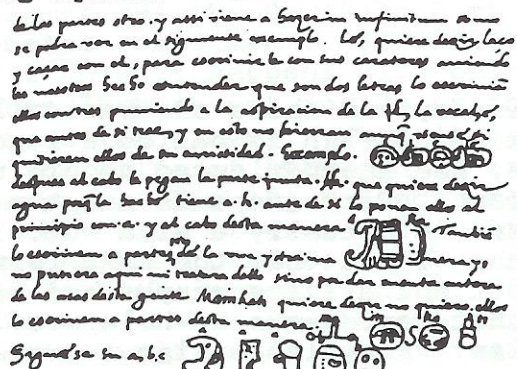 de las partes otro. y assi viene a hazer in infinitum como
se podra ver en el siguiente exemplo. Lé, quiere dezir laço
y caçar con el, para escrivirle con sus carateres aviendo
les nosotros hecho entender que son dos letras lo escrivian
ellos con tres puniendo a la aspiracion de la l, la vocal é,
que antes de si trae, y en esto no hierran aunq̃ usense si
quisieren ellos de su curiosidad. Exemplo.
despues al cabo le pegan la parte junta. Ha. que quiere dezir
agua porq̃ la hache tiene a. h. ante de si lo ponen ellos al
principio con .a. y al cabo desta manera Tambiẽ
lo escriven a partes de la una y otra manera yo
no pusiera aqui ni tratara dello sino por dar cuenta entera
de las cosas desta gente Mainkati quiere dezir no quiero ellos
lo escriven a partes desta manera.
Siguese su a, b, c